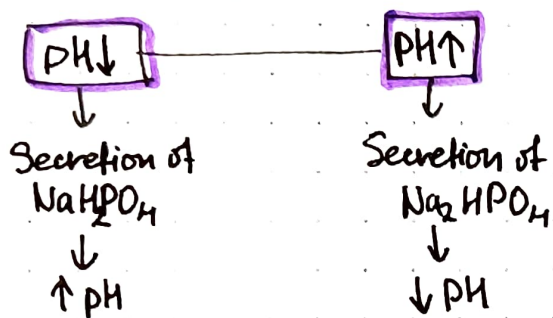 pH↓
PH↑
↓
↓
Secretion of
NaH₂PO₄
↓
↑ pH
Secretion of
Na₂HPO₄
↓
↓ pH